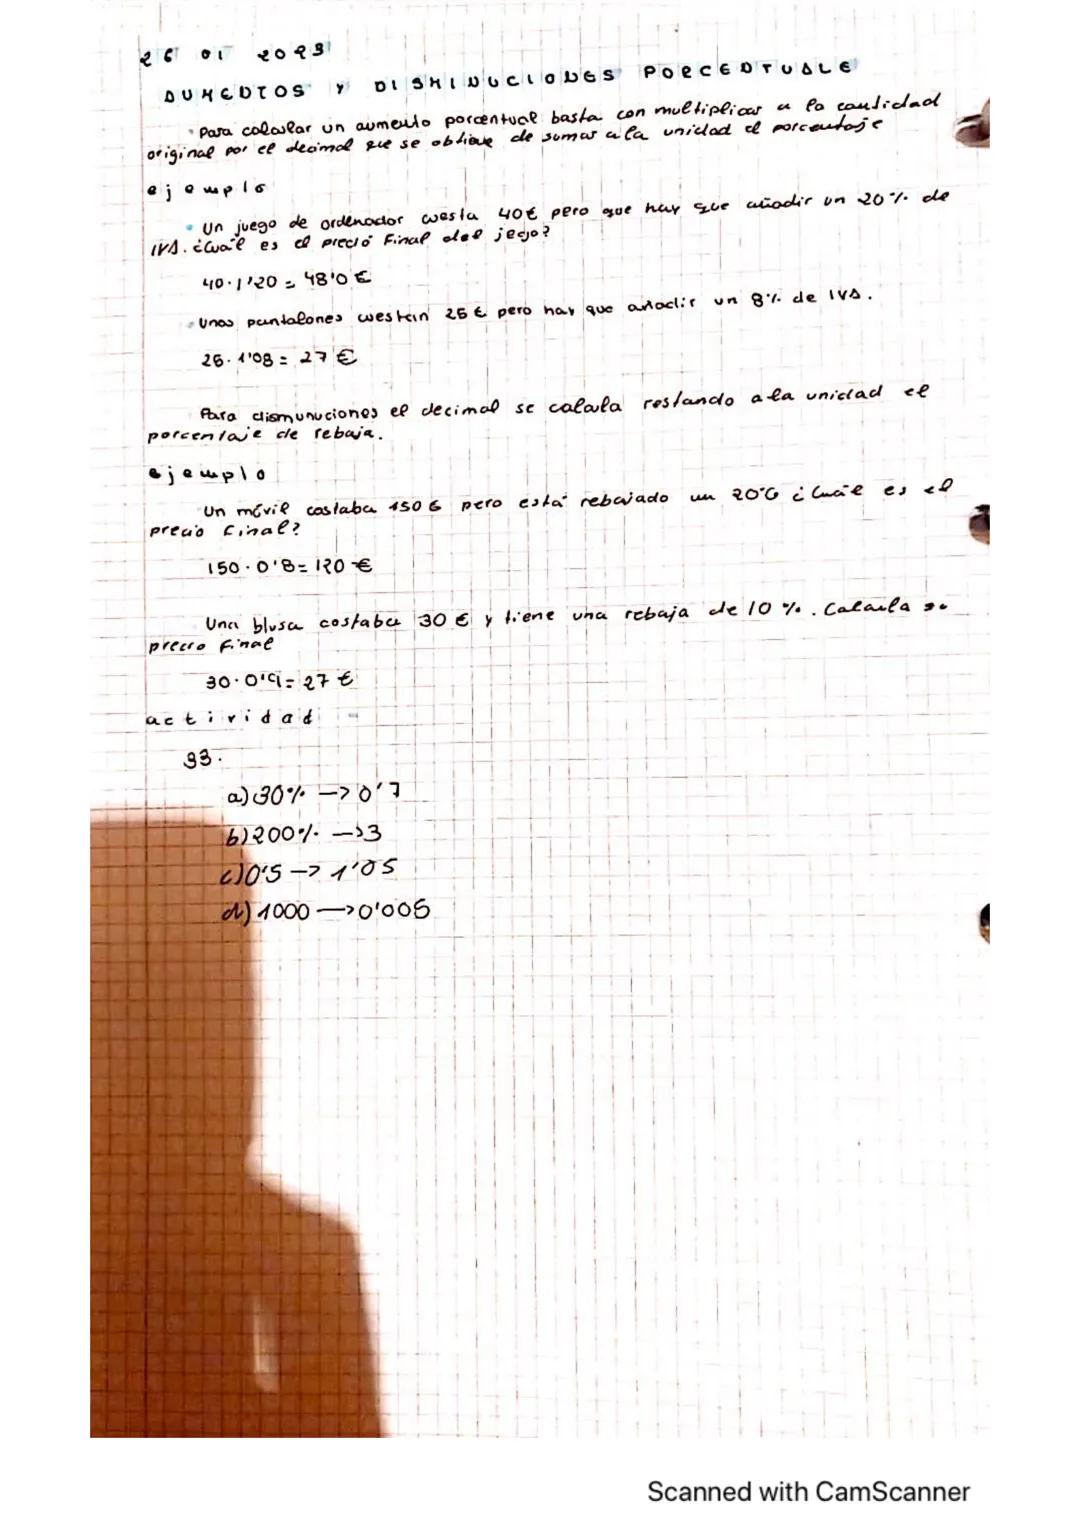 26 01 2023
AUMENTOS Y DISMINUCIONES PORCENTUALE
· Para calcular un aumento porcentual basta con multiplicar a la cantidad
original por el decimal que se obtiene de sumar a la unidad el porcentaje
ejemplo
· Un juego de ordenador cuesta 40€ pero que hay que añadir un 20% de
IVA. ¿Cuál es el precio Final del jego?
40·1'20 = 48'0 €
· Unos pantalones cuestan 25 € pero hay que añadir un 8% de IVA.
25·1'08 = 27 €
Para dismunuciones el decimal se calcula restando a la unidad el
porcentaje de rebaja.
ejemplo
Un móvil costaba 150 € pero está rebajado un 20% ¿Cuál es el
precio Final?
150·0'8 = 120 €
Una blusa costaba 30 € y tiene una rebaja de 10 %. Calcula su
precio Final
30·0'9 = 27 €
actividad
93.
a) 30% -> 0'7
b) 200% -> 3
c) 0'5 -> 1'05
d) 1000 -> 0'005
Scanned with CamScanner